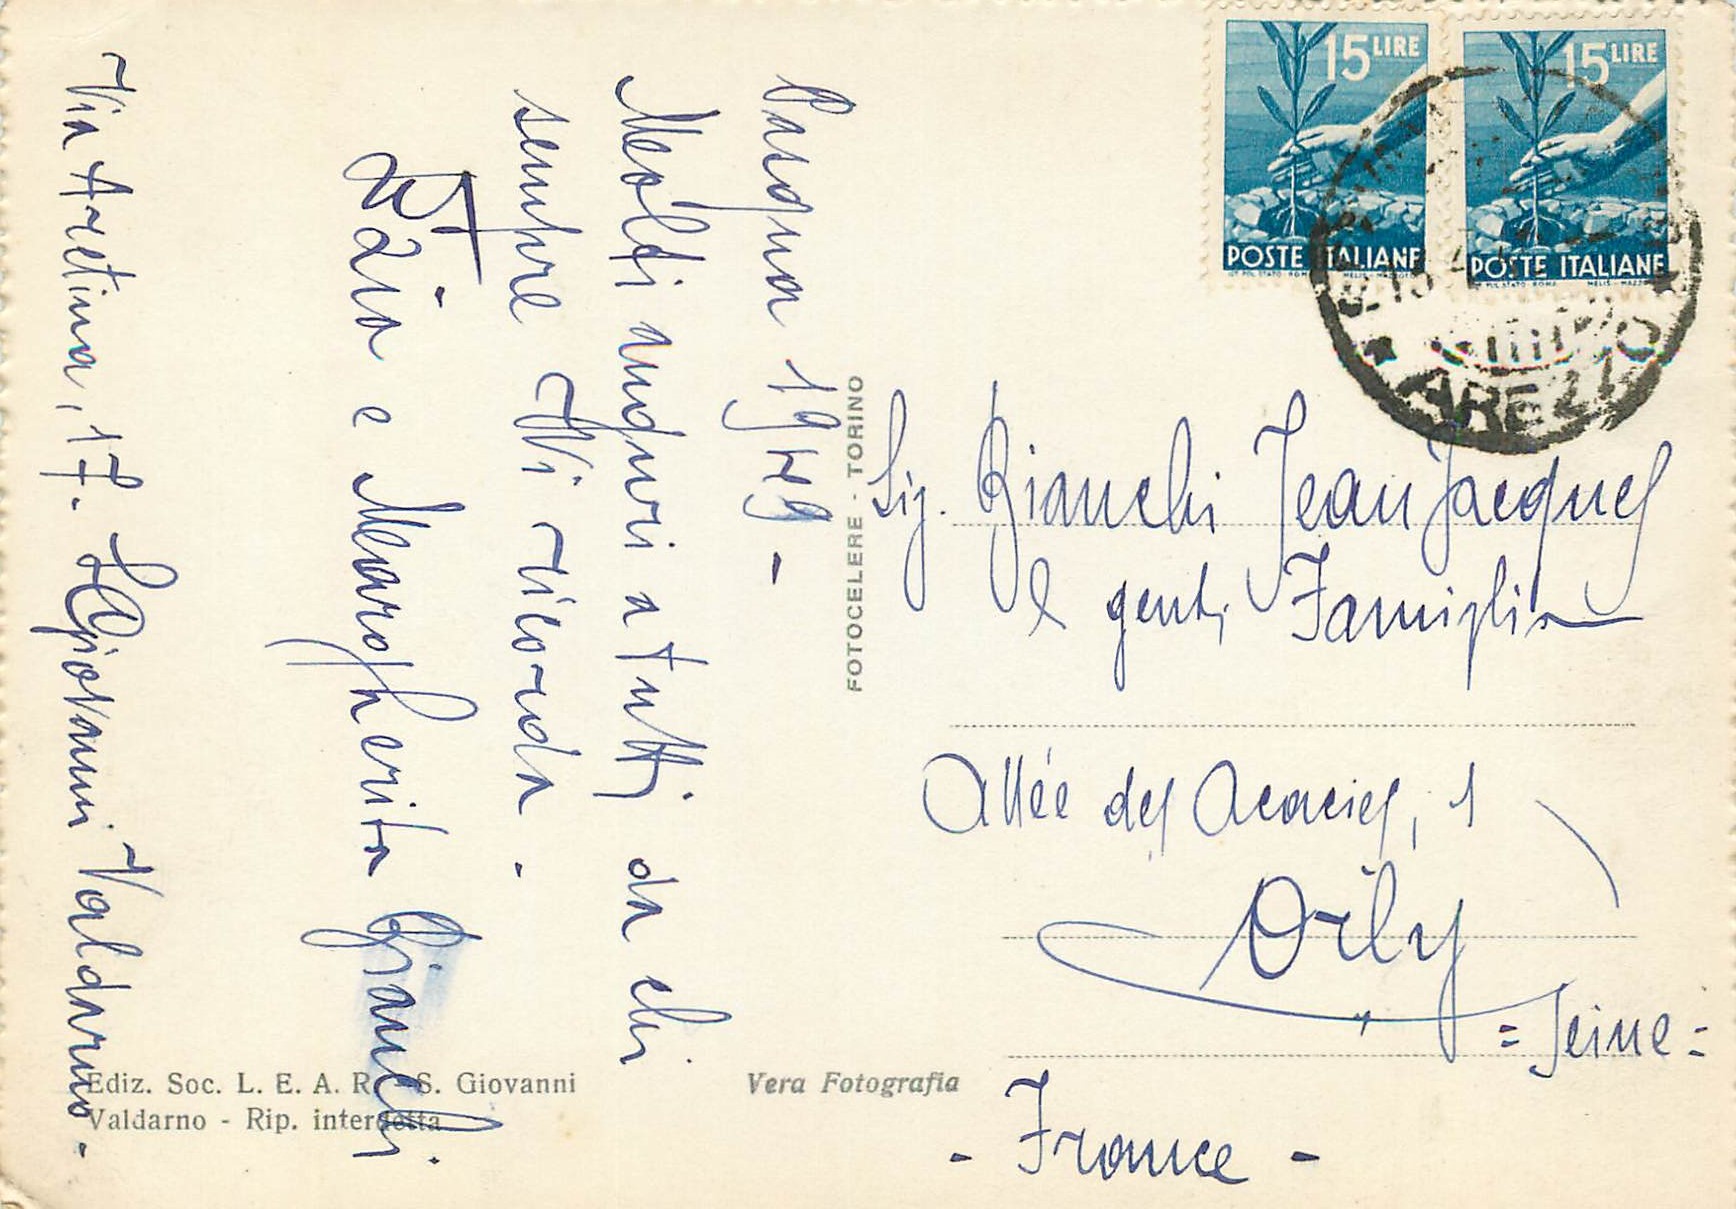 Pasqua 1949 -
Molti auguri a tutti da chi
sempre Vi ricorda -
Zio e Margherita Bianchi
Via Aretina, 17. S. Giovanni Valdarno -
FOTOCELERE - TORINO
15 LIRE
POSTE ITALIANE
15 LIRE
POSTE ITALIANE
AREZZO
Sig. Bianchi Jean Jacques
e gent. Famiglia
Allée des Acacies, 1
Orly
= Seine =
- France -
Ediz. Soc. L. E. A. R. - S. Giovanni
Valdarno - Rip. interdetta
Vera Fotografia